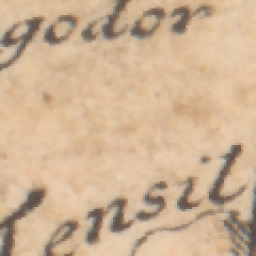 godor
ensil